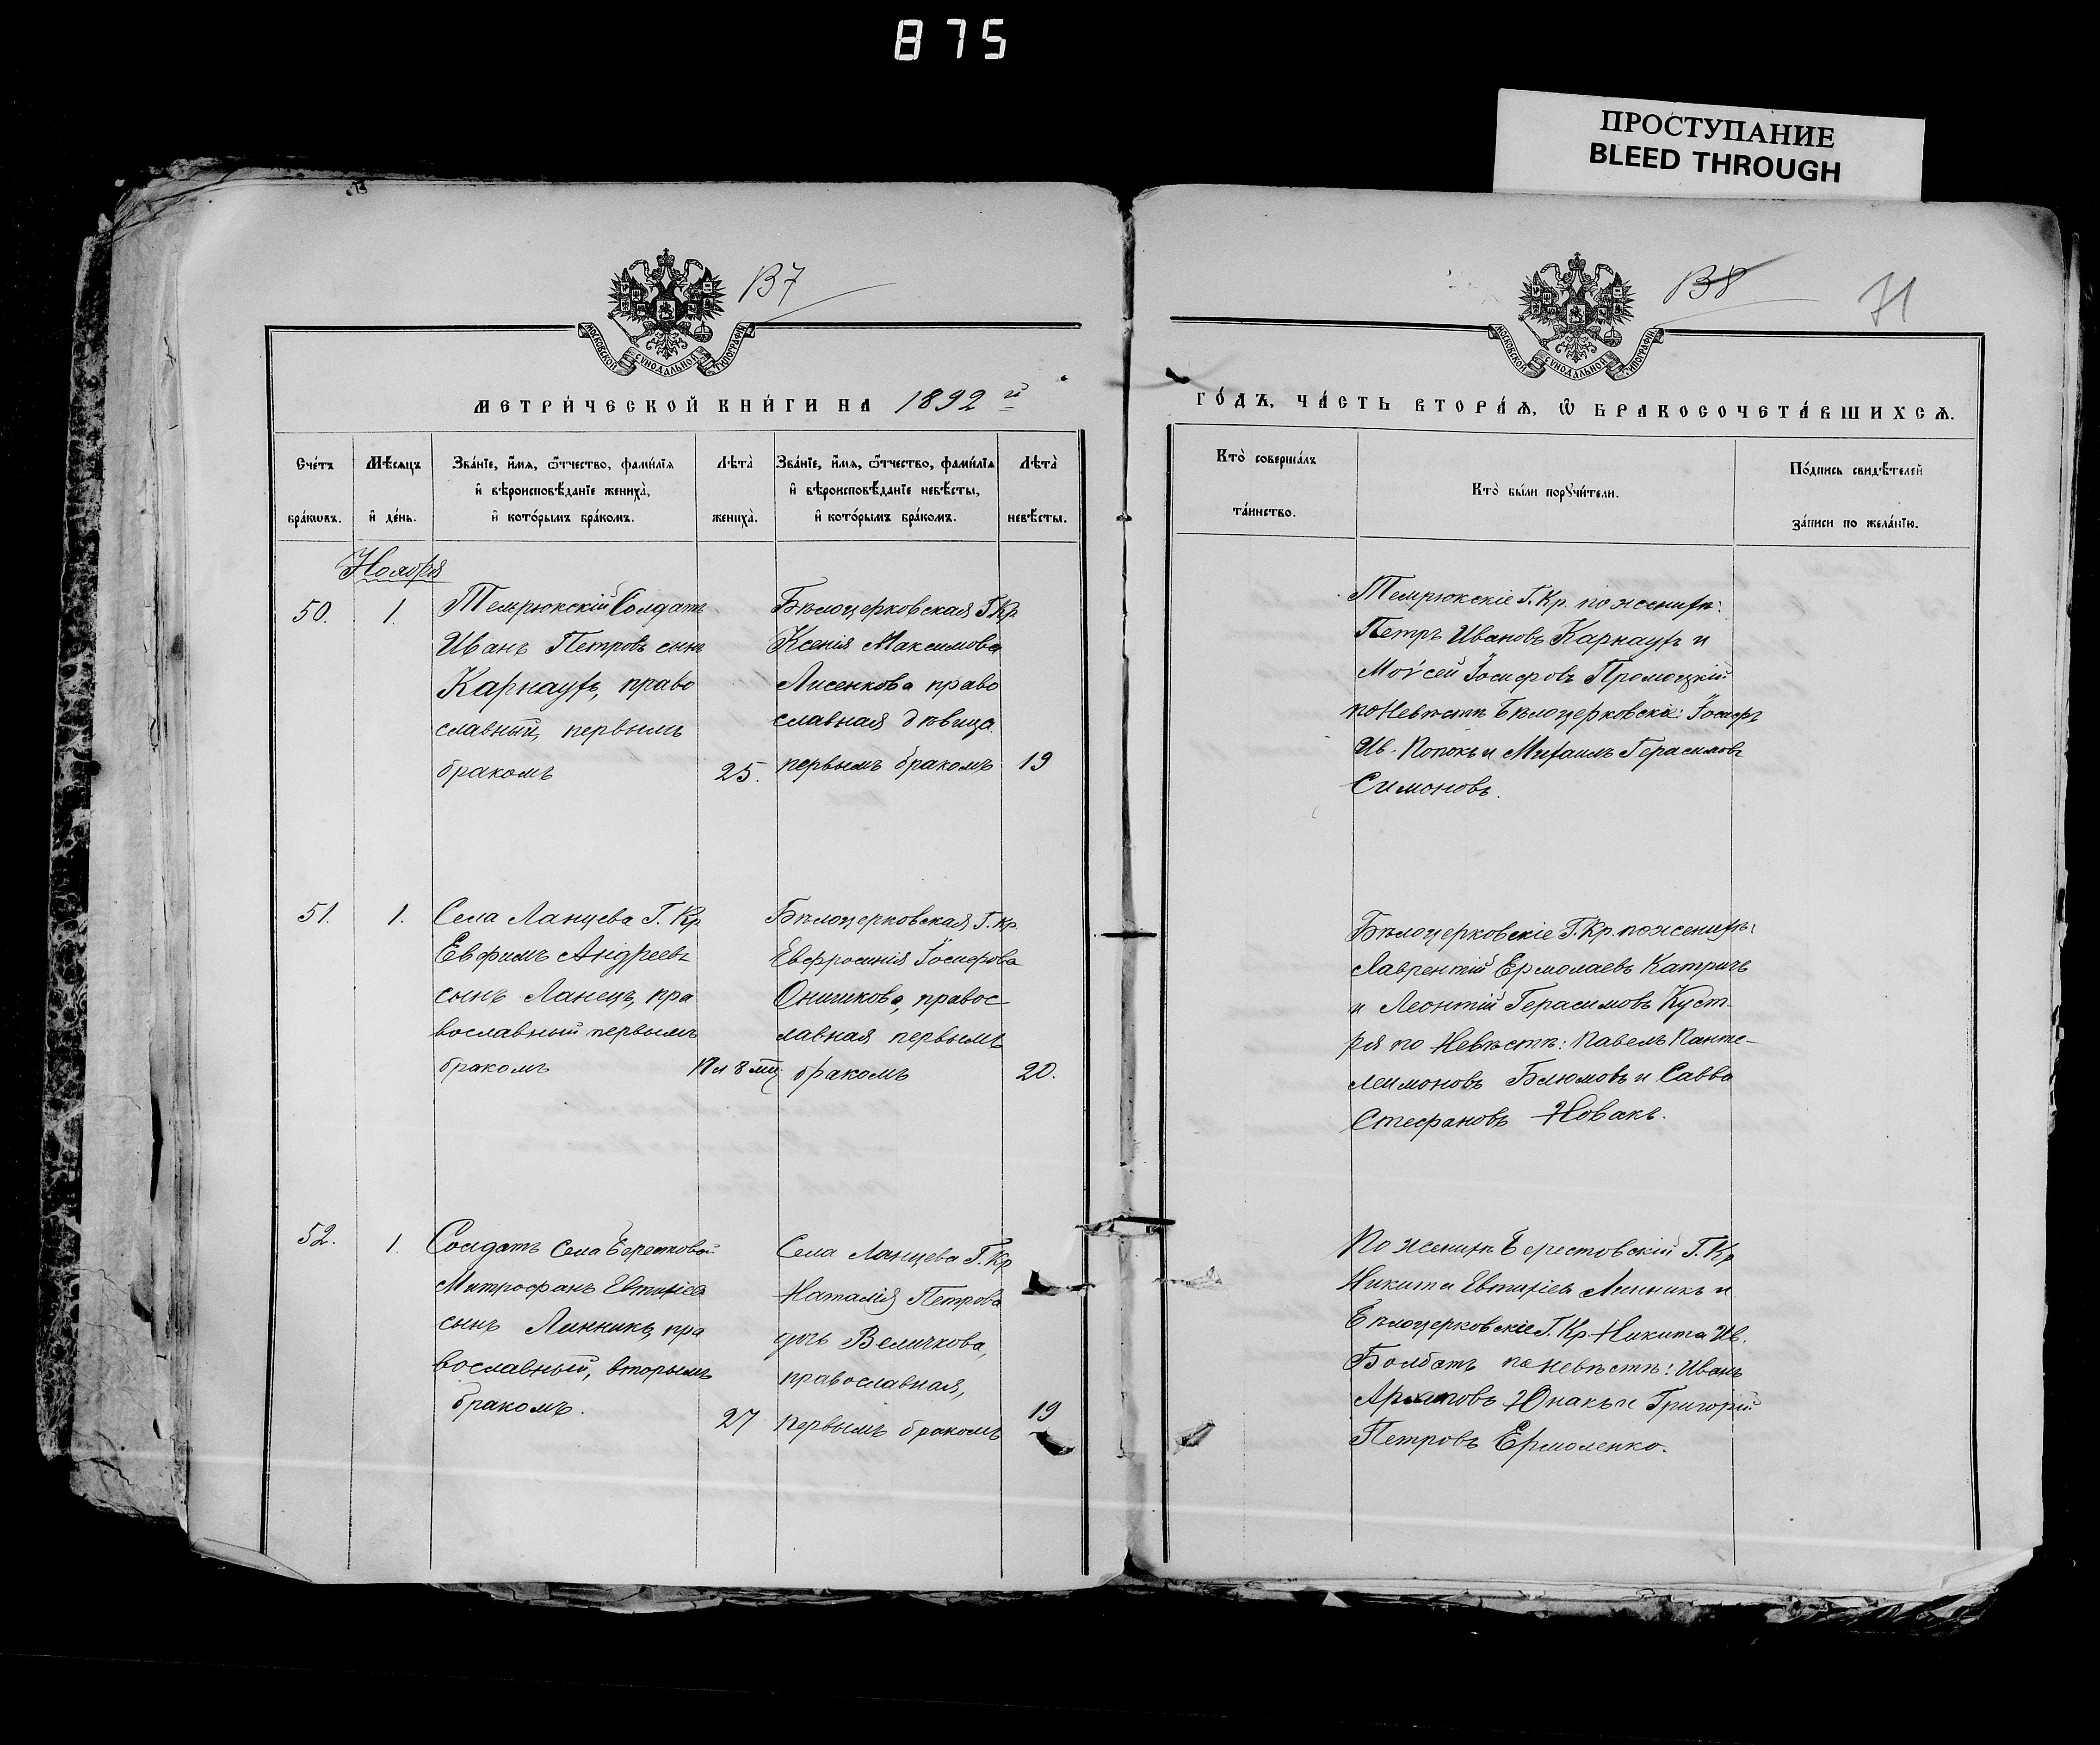 875
ПРОСТУПАНИЕ
BLEED THROUGH
137
138
71
МОСКОВСКОЙ СѴНОДАЛЬНОЙ ТИПОГРАФІИ
МОСКОВСКОЙ СѴНОДАЛЬНОЙ ТИПОГРАФІИ
МЕТРИ́ЧЕСКОЙ КНИ́ГИ НА 1892 й
ГО́ДЪ, ЧА́СТЬ ВТОРА́Ѧ, Ѽ БРАКОСОЧЕТА́ВШИХСѦ.
Сче́тъ бра́кѡвъ.
Мѣ́сѧцъ и҆ де́нь.
Зва́нїе, и҆́мѧ, ѻ҆́тчество, фами́лїѧ и҆ вѣроисповѣ́данїе жениха̀, и҆ кото́рымъ бра́комъ.
Лѣ̑та жениха̀.
Зва́нїе, и҆́мѧ, ѻ҆́тчество, фами́лїѧ и҆ вѣроисповѣ́данїе невѣ́сты, и҆ кото́рымъ бра́комъ.
Лѣ̑та невѣ́сты.
Кто̀ соверша́лъ та́инство.
Кто̀ бы́ли порꙋчи́тели.
По́дпись свидѣ́телей за́писи по жела́нїю.
Ноября
50.
1.
Темрюкскій Солдатъ
Иванъ Петровъ сынъ
Карнаухъ, право
славный, первымъ
бракомъ
25.
Бѣлоцерковская Г. Кр.
Ксенія Максимова
Лисенкова право
славная дѣвица
первымъ бракомъ
19
Темрюкскіе Г. Кр. по женихѣ:
Петръ Ивановъ Карнаухъ и
Моѵсей Іосифовъ
по Невѣстѣ Бѣлоцерковскіе: Іосифъ
Ив. Попокъ и Михаилъ Герасимовъ
Симоновъ.
51.
1.
Села Ланцева Г. Кр
Евфимъ Андреевъ
сынъ Ланецъ, пра
вославный первымъ
бракомъ
Бѣлоцерковская Г. Кр.
Евфросинія Іосифова
Оничкова, правос-
лавная первымъ
бракомъ
20.
Бѣлоцерковскіе Г. Кр. по женихѣ:
Лаврентій Ермолаевъ Катричъ
и Леонтій Герасимовъ Куст-
ря по Невѣстѣ: Павелъ Панте-
леимоновъ Блюмовъ и Савва
Стефановъ Новакъ.
52.
1.
Солдатъ Села Берестовой
Митрофанъ Евтихіевъ
сынъ Линникъ, пра
вославный, вторымъ
бракомъ.
27
Села Ланцева Г. Кр
Наталія Петрова
дочь Величкова,
православная,
первымъ бракомъ
19
По женихѣ Берестовскій Г. Кр
Никита Евтихіевъ Линникъ и
Бѣлоцерковскіе Г. Кр. Никита Ив.
Болбатъ по невѣстѣ: Иванъ
Юнакъ и Григорій
Петровъ Ермоленко.